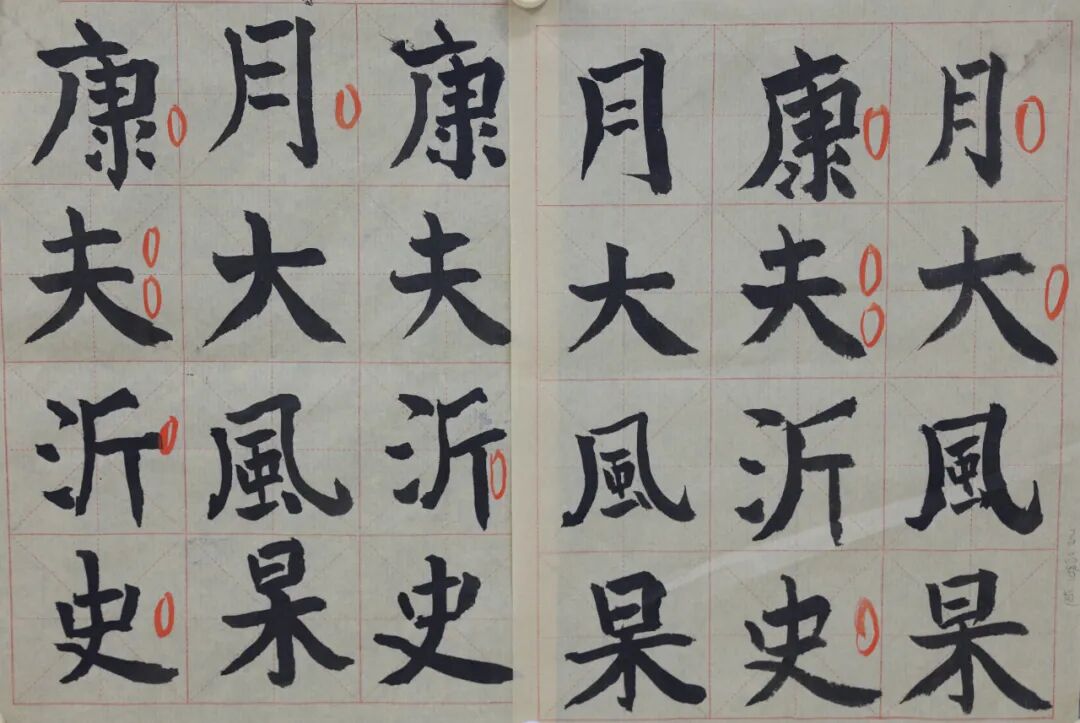 月大風杲
康夫沂史
月大風杲
康夫沂史
月大風杲
康夫沂史